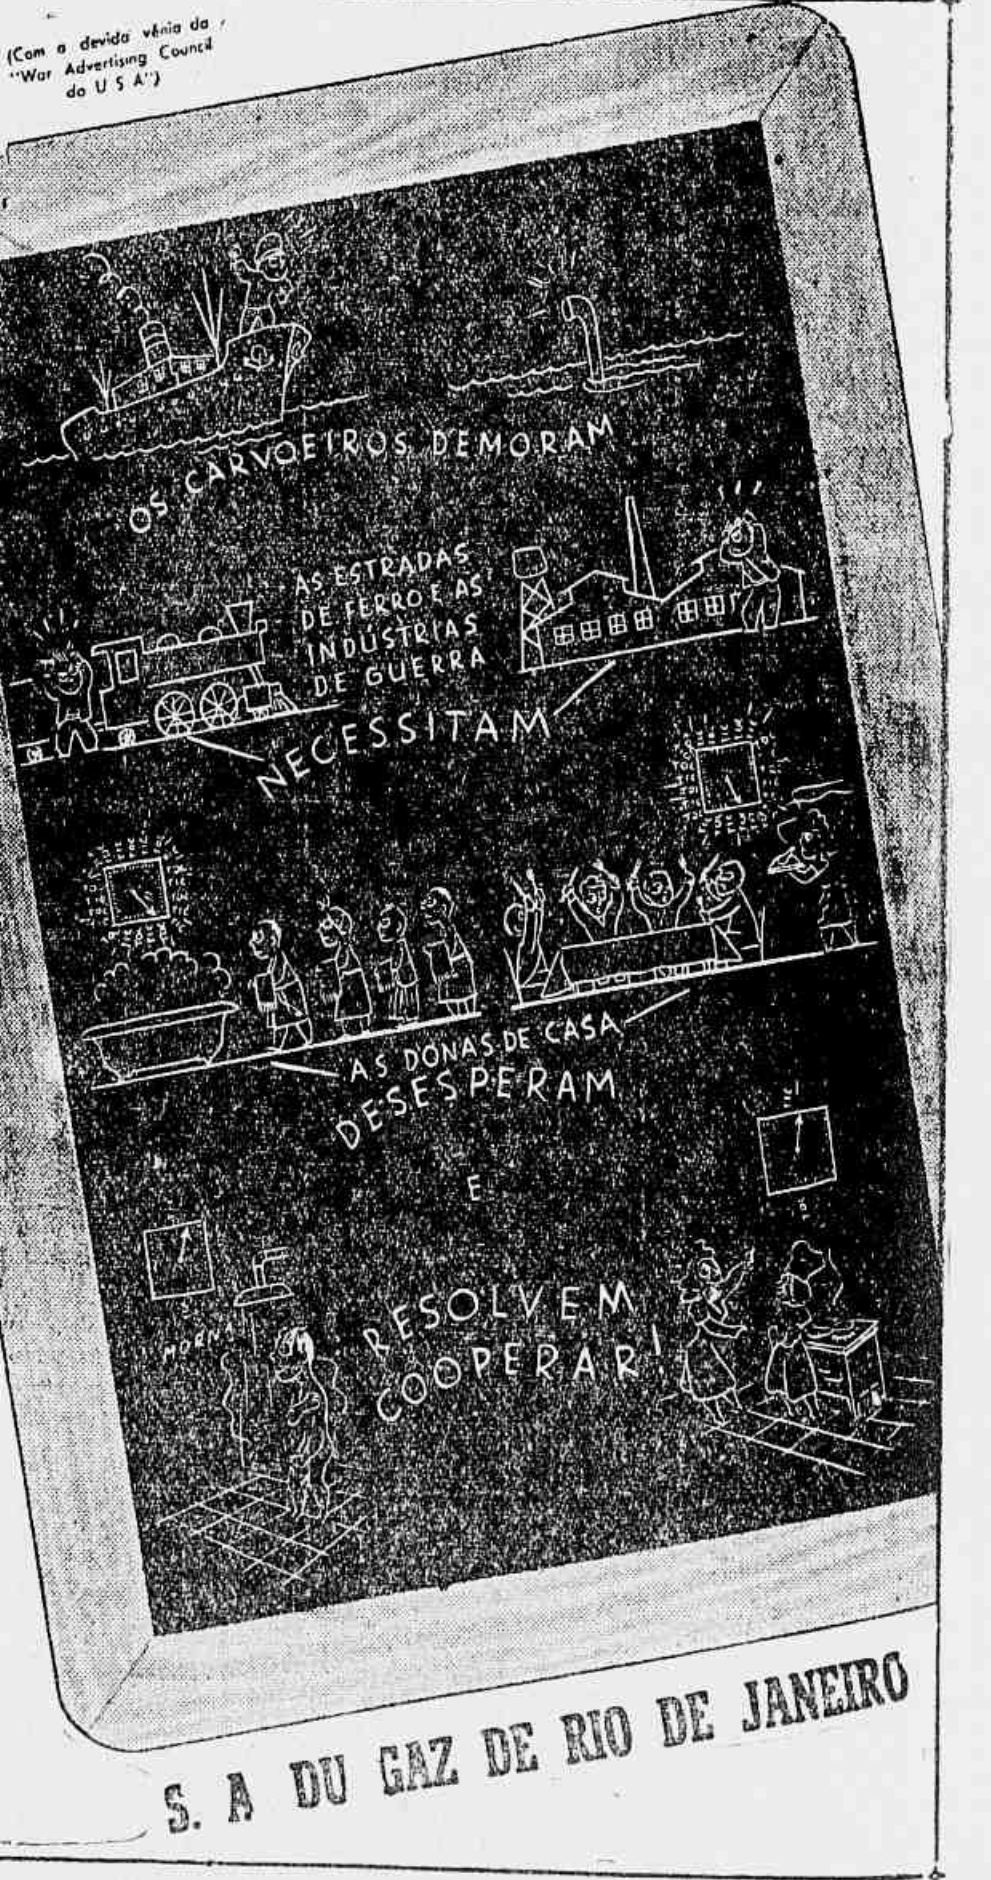 (Com a devida vênia da
"War Advertising Council
do U S A")
OS CARVOEIROS DEMORAM
AS ESTRADAS
DE FERRO E AS
INDÚSTRIAS
DE GUERRA
NECESSITAM
AS DONAS DE CASA
DESESPERAM
E
MORNA
RESOLVEM
COOPERAR!
S. A DU GAZ DE RIO DE JANEIRO